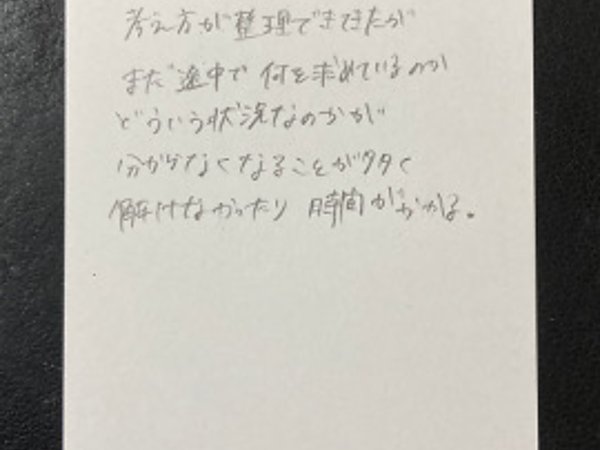 考え方が整理できてきたが
まだ途中で何を求めているのか
どういう状況なのかが
分からなくなることが多く
解けなかったり 時間がかかる。